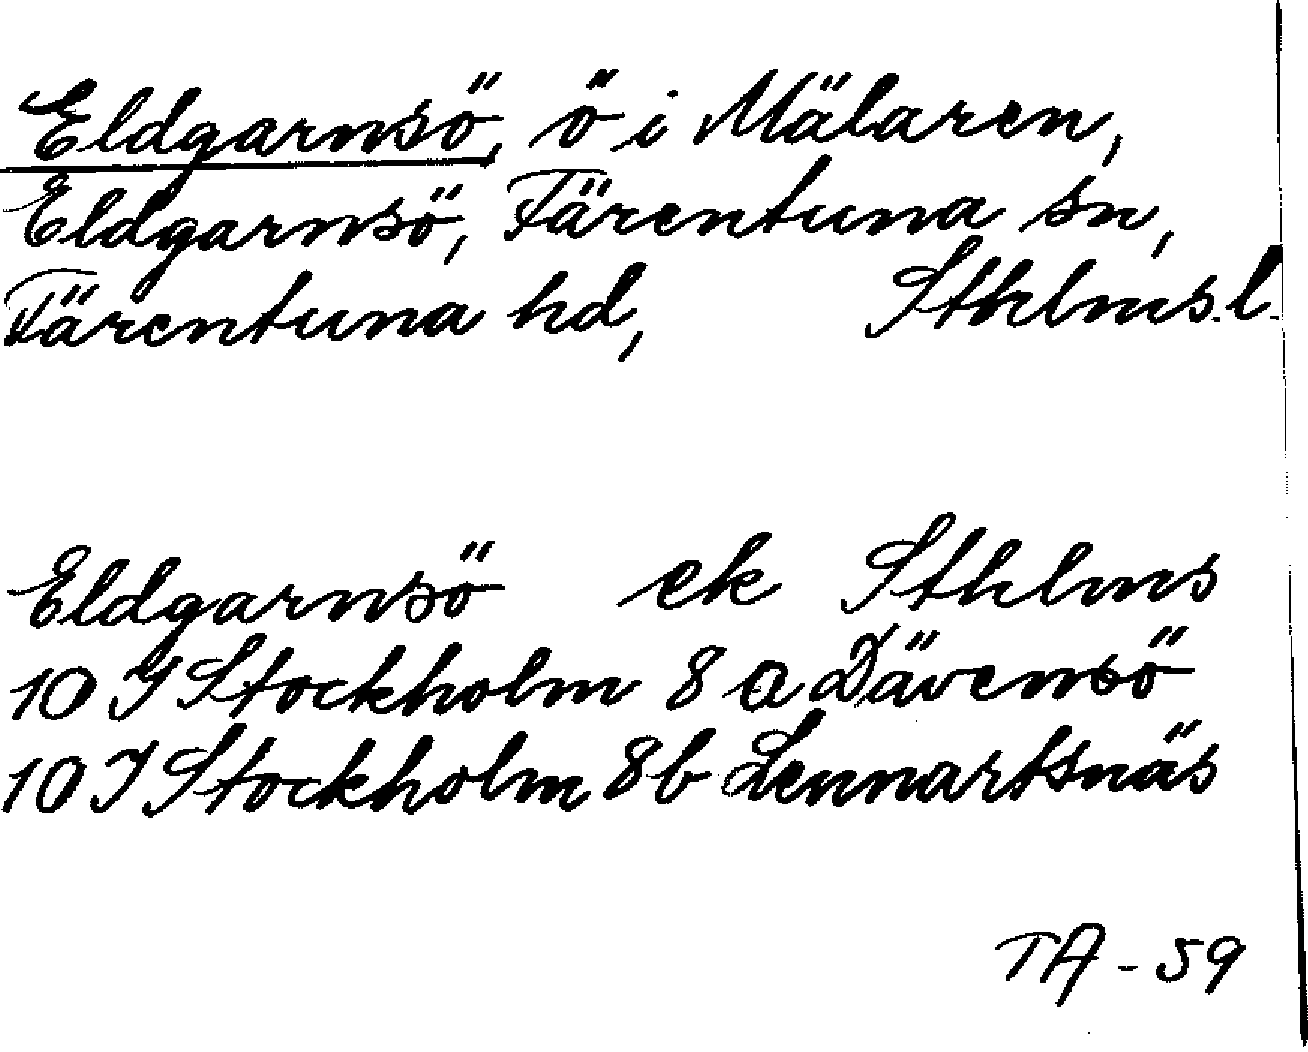 Eldgarnsö, ö i Mälaren,
Eldgarnsö, Färentuna sn,
Färentuna hd, Sthlms. l.
Eldgarnsö ek Sthlms
10 I Stockholm 8 a Dävensö
10 I Stockholm 8 b Lennartsnäs
TA - 59